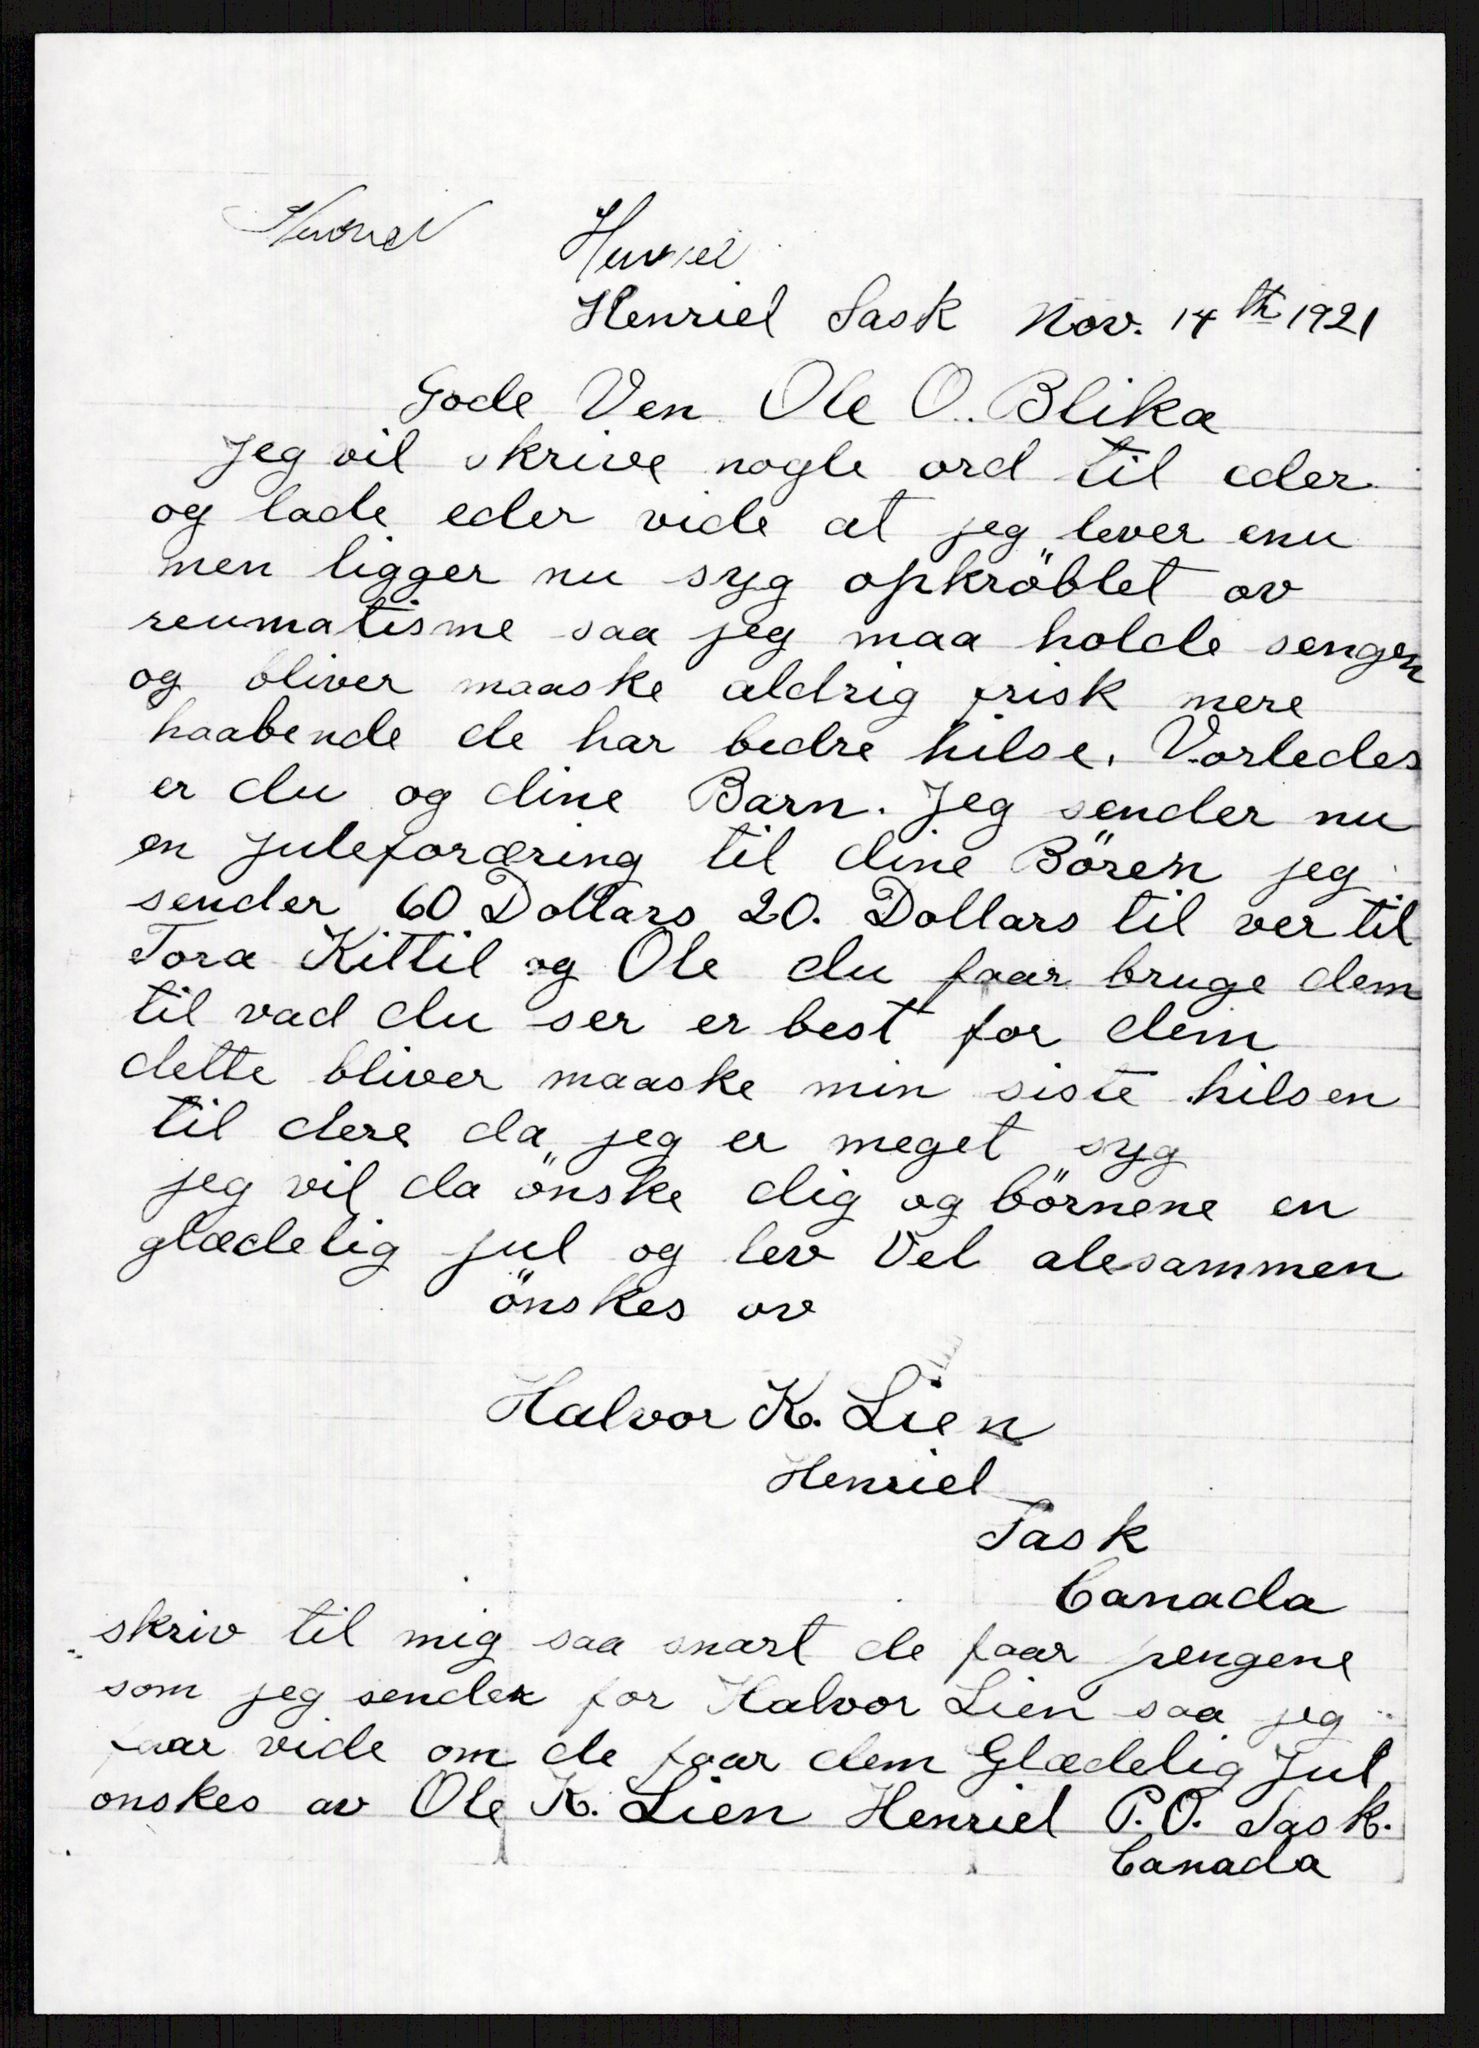 Henriel Sask Nov. 14th 1921
Gode Ven Ole O. Blika
Jeg vil skrive nogle ord til eder
og lade eder vide at jeg lever enu
men ligger nu syg opkröblet av
reumatisme saa jeg maa holde sengen
og bliver maaske aldrig frisk mere
haabende de har bedre hilse. Vorledes
er du og dine Barn. Jeg sender nu
en juleforæring til dine Bören jeg
sender 60 Dollars 20. Dollars til ver til
Tora Kittil og Ole du faar bruge dem
til vad du ser er best for dem
dette bliver maaske min siste hilsen
til dere da jeg er meget syg
jeg vil da önske dig og börnene en
glædelig jul og lev Vel alesammen
önskes av
Halvor K. Lien
Henriel
Sask
Canada
skriv til mig saa snart de faar pengene
som jeg sender for Halvor Lien saa jeg
faar vide om de faar dem Glædelig Jul
onskes av Ole K. Lien Henriel P.O. Sask.
Canada